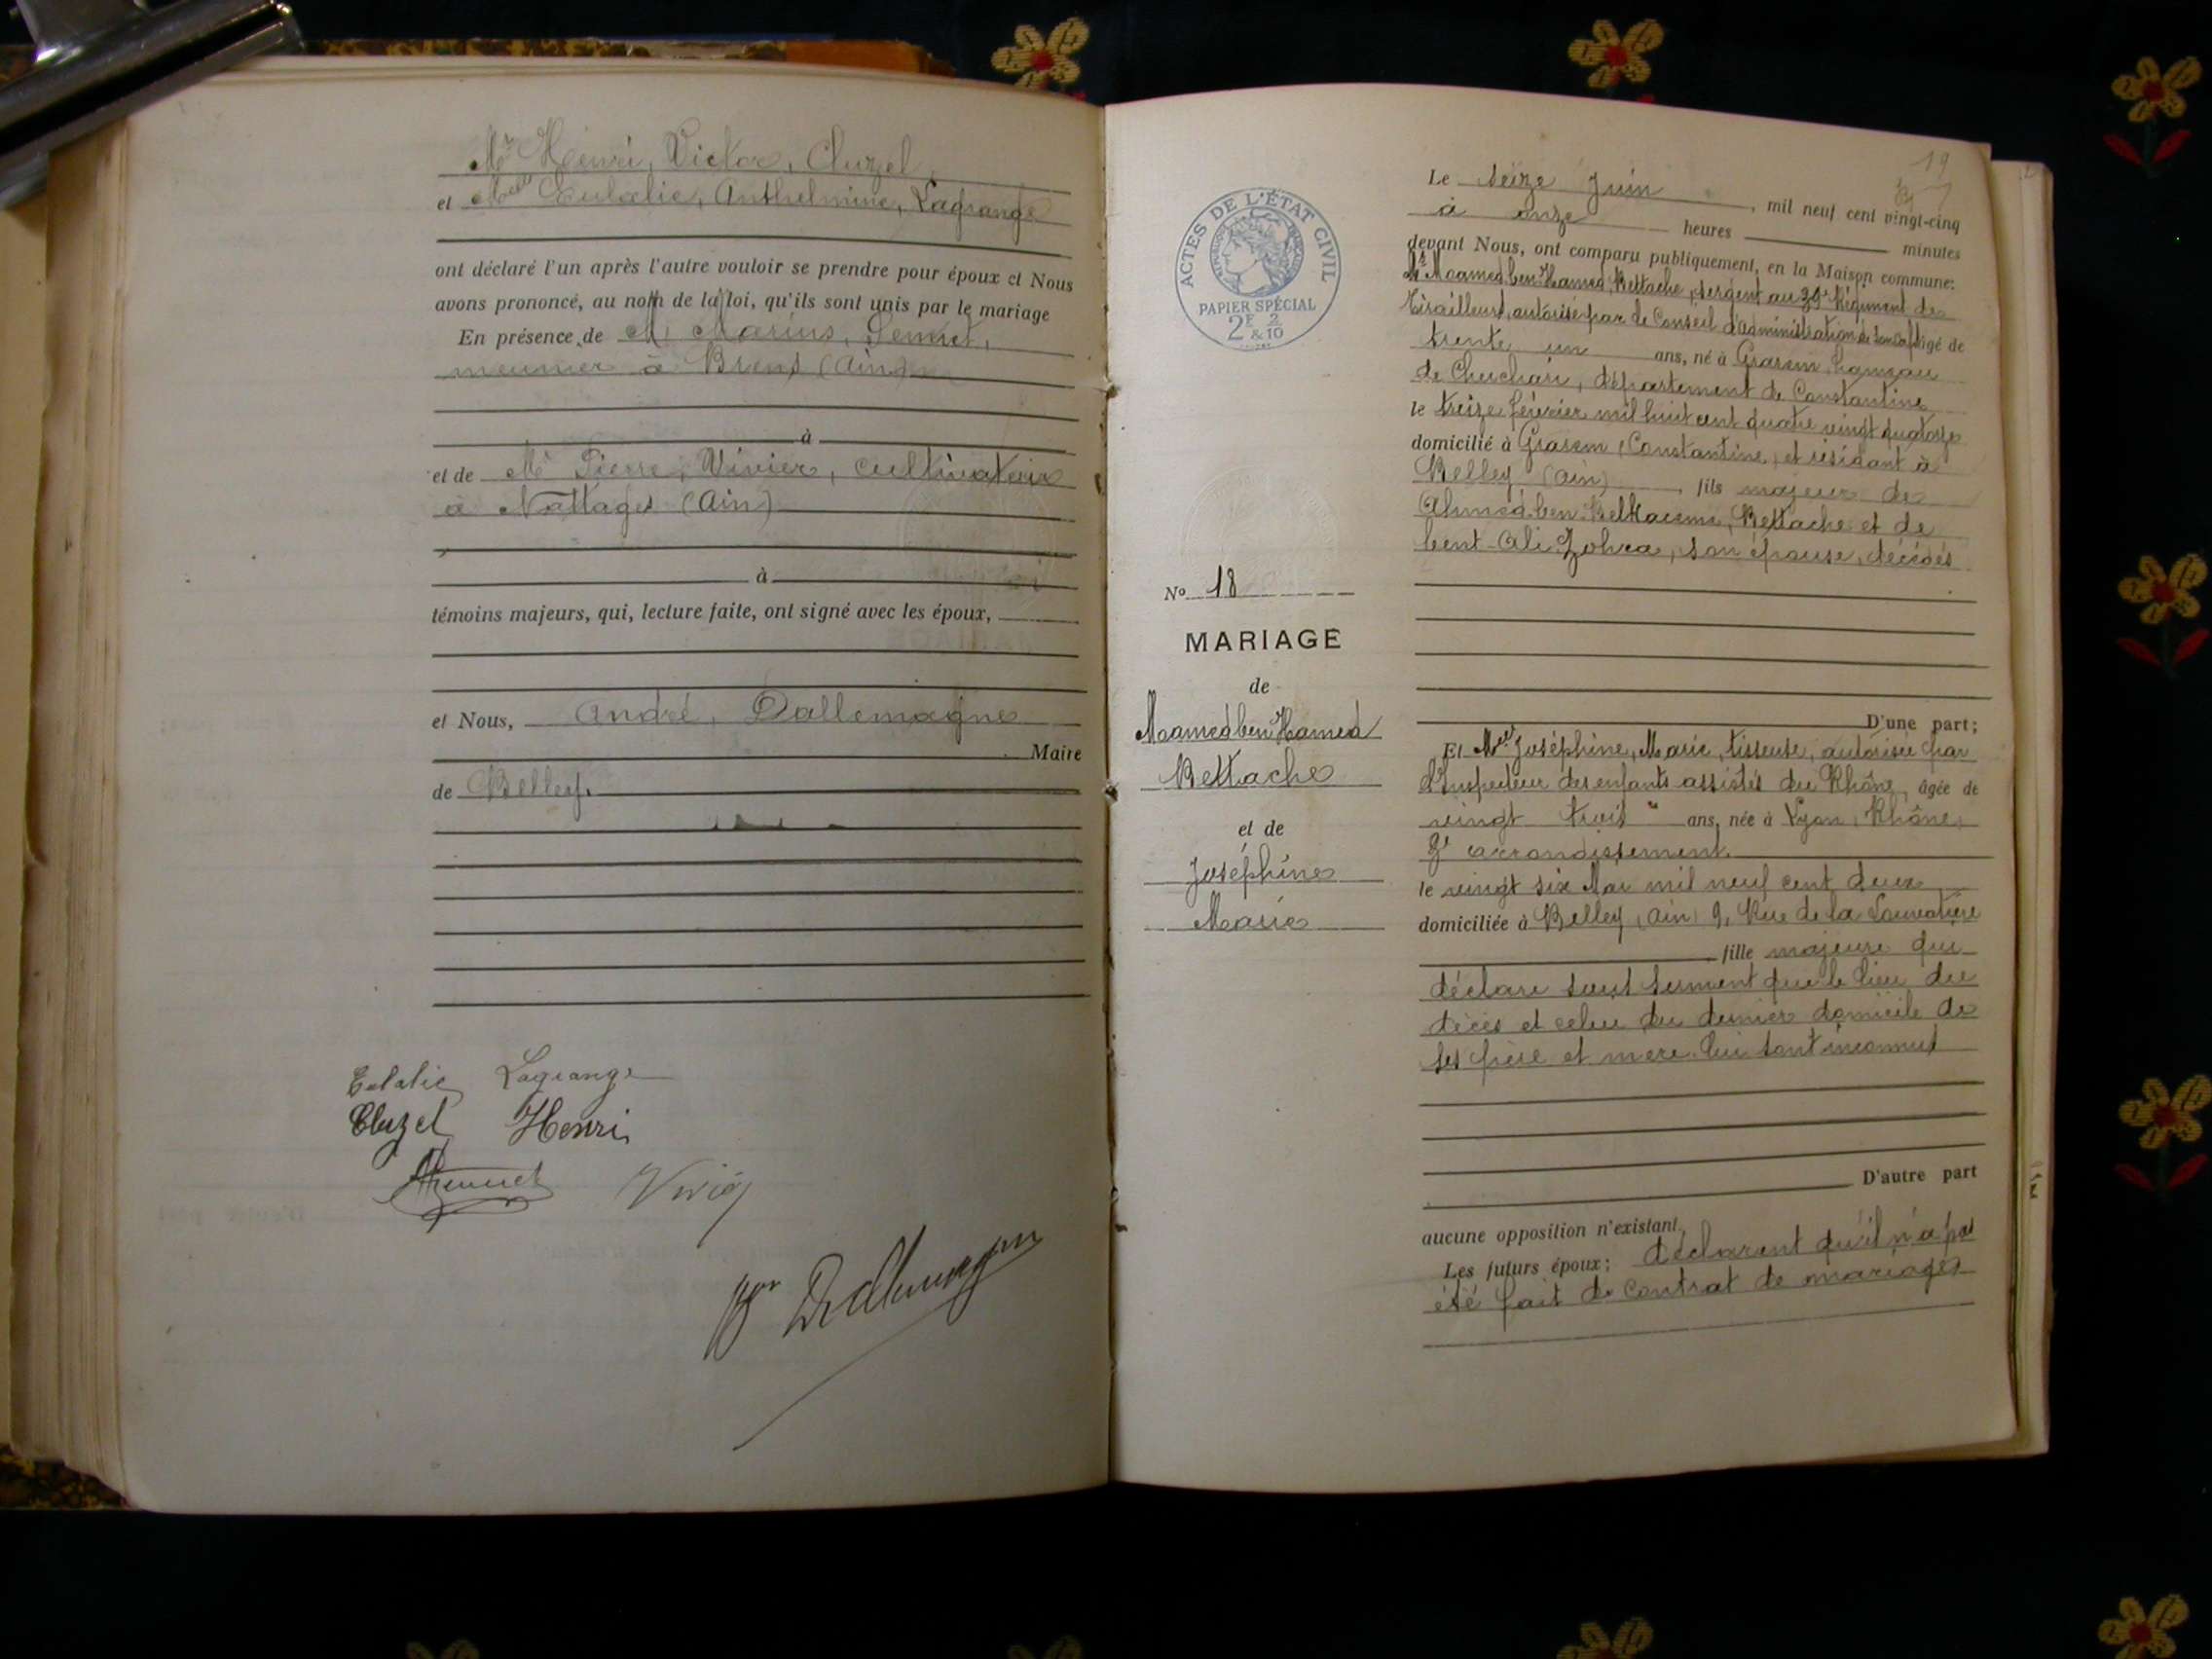 Mr Henri, Victor, Cluzel,
et Melle Eulalie, Anthelmine, Lagrange
ont déclaré l'un après l'autre vouloir se prendre pour époux et Nous
avons prononcé, au nom de la loi, qu'ils sont unis par le mariage
En présence de M. Marius,
meunier à Brens (Ain)
à
et de Mr Pierre, Vivier, cultivateur
à Nattages (Ain)
à
témoins majeurs, qui, lecture faite, ont signé avec les époux,
et Nous, André, Dallemagne
Maire
de Belley.
Eulalie Lagrange
Cluzel Henri
19
Le seize Juin, mil neuf cent vingt-cinq
à onze heures minutes
devant Nous, ont comparu publiquement, en la Maison commune:
Mr Maamed ben Hamed Bettache, sergent au Régiment de
Tirailleurs, autorisé par le Conseil d'administration de son âgé de
trente un ans, né à Grasem, hameau
de département de Constantine
le treize février mil huit cent quatre vingt quatorze
domicilié à Grasem, Constantine, et résidant à
Belley (Ain), fils majeur de
Ahmed ben Belkacem, Bettache et de
bent Ali Zohra, son épouse, décédés
D'une part;
Et Melle Joséphine, Marie, tisseuse, autorisée par
l'Inspecteur des enfants assistés du Rhône, âgée de
vingt trois ans, née à Lyon, Rhône,
arrondissement
le vingt six Mai mil neuf cent deux
domiciliée à Belley (Ain) 9, Rue de la
fille majeure qui
déclare sous serment que le lieu du
décès et celui du dernier domicile de
ses père et mère lui sont inconnus
D'autre part
aucune opposition n'existant.
Les futurs époux; déclarent qu'il n'a pas
été fait de contrat de mariage
ACTES DE L'ÉTAT CIVIL
PAPIER SPÉCIAL
2F & 2/10
No 18
MARIAGE
de
Maamed ben Hamed
Bettache
et de
Joséphine
Marie